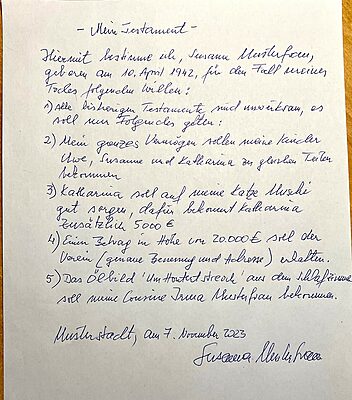 - Mein Testament -
Hiermit bestimme ich, Susanna Musterfrau,
geboren am 10. April 1942, für den Fall meines
Todes folgenden Willen:
1) Alle bisherigen Testamente sind unwirksam, es
soll nur Folgendes gelten:
2) Mein ganzes Vermögen sollen meine Kinder
Uwe, Susanne und Katharina zu gleichen Teilen
bekommen
3) Katharina soll auf meine Katze Muschi
gut sorgen, dafür bekommt Katharina
zusätzlich 5000 €
4) Einen Betrag in Höhe von 20.000 € soll der
Verein (genaue Benennung und Adresse) erhalten.
5) Das Ölbild aus dem Schlafzimmer
soll meine Cousine Irma Musterfrau bekommen.
Musterstadt, am 7. November 2023
Susanna Musterfrau